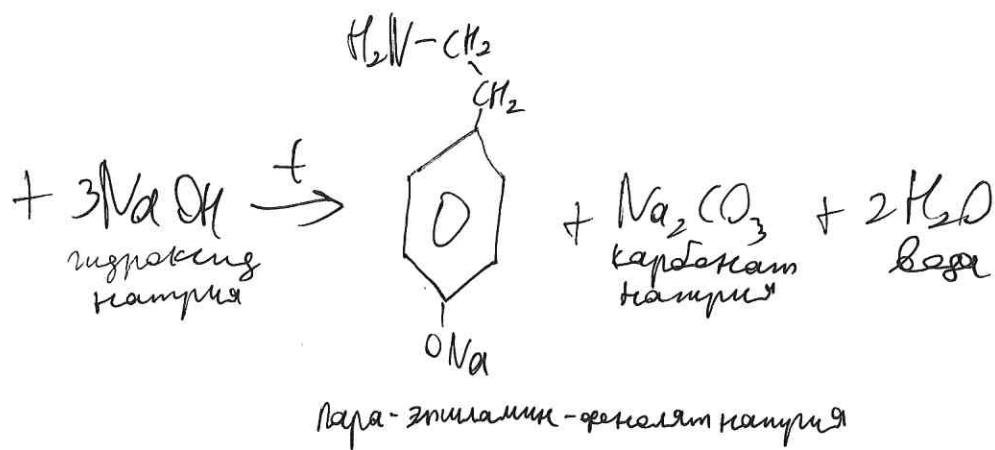 H₂N-CH₂
CH₂
+ 3NaOH t → + Na₂CO₃ + 2H₂O
гидроксид натрия
карбонат натрия
вода
ONa
пара-этиламин-фенолят натрия